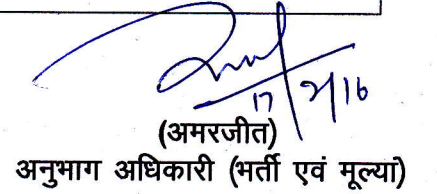 17/2/16
(अमरजीत)
अनुभाग अधिकारी (भर्ती एवं मूल्यां)